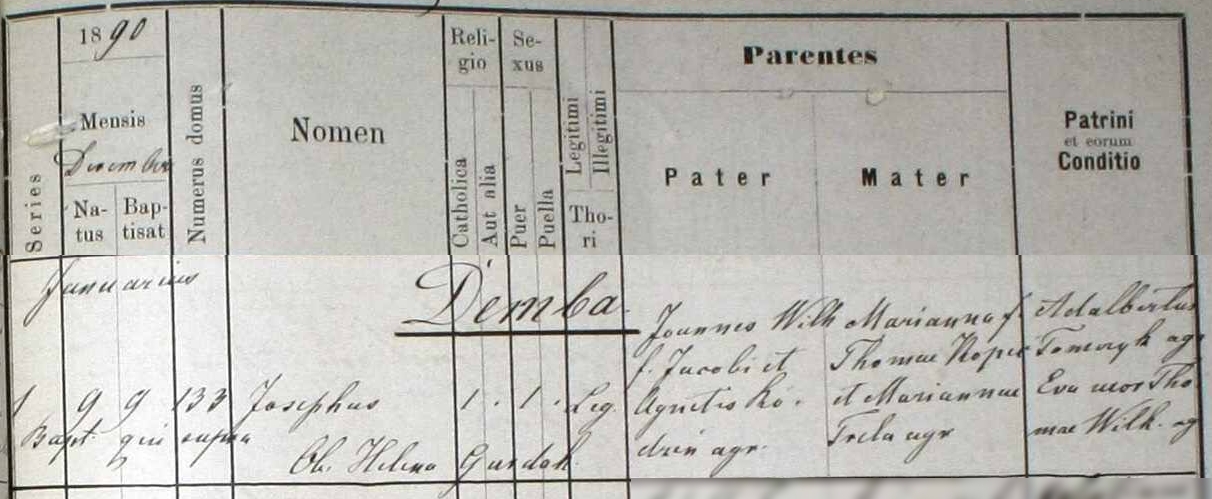 1890
Mensis
December
Series
Natus
Baptisat
Numerus domus
Nomen
Religio
Catholica
Aut alia
Sexus
Puer
Puella
Legitimi
Illegitimi
Thori
Parentes
Pater
Mater
Patrini
et eorum
Conditio
Januarius
Demba
1 9 9 133 Josephus 1. 1. Leg.
Joannes Wilk
f. Jacobi et
Agnetis Ko-
dzin agr.
Marianna f.
Thomae Kopec
et Mariannae
Trela agr
Adalbertus
Tomczyk agr
Eva uxor Tho
mae Wilk. ag
Bapt. qui supra
Ob. Helena Gurdak